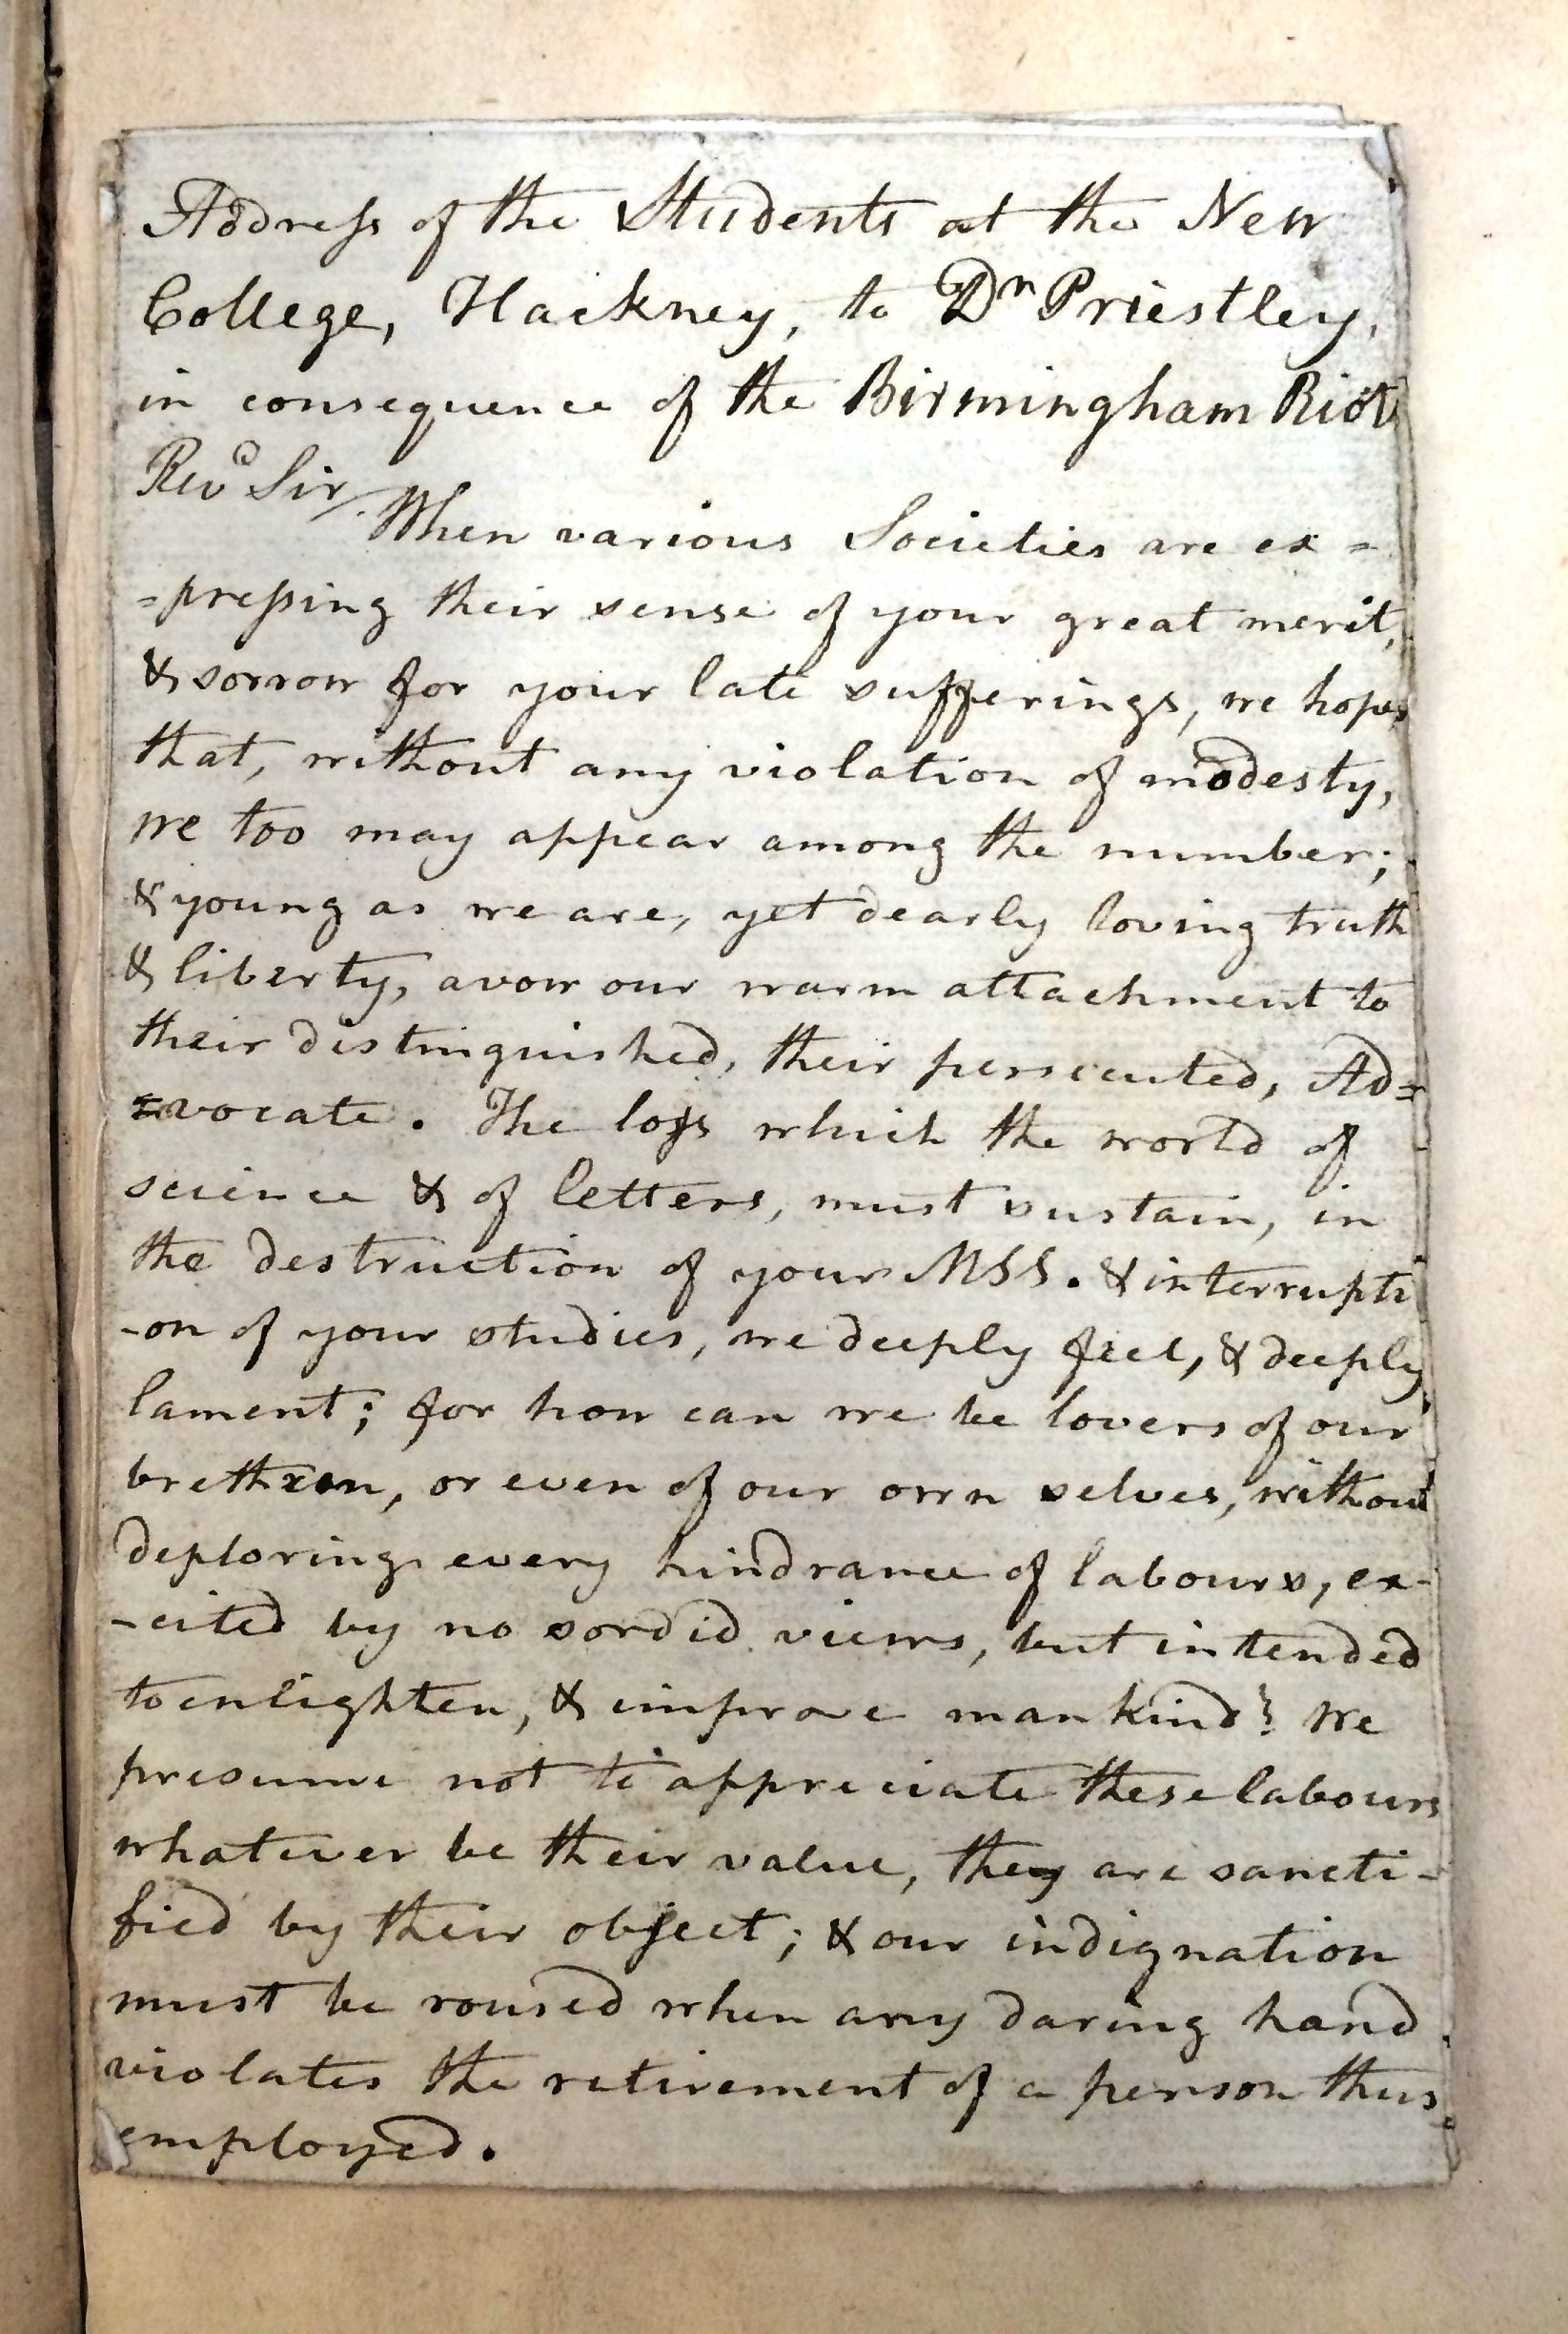 Addreſs of the Students at the New
College, Hackney, to Dr Priestley,
in consequence of the Birmingham Riot
Revd Sir/.
When various Societies are ex=
=preſsing their sense of your great merit,
& sorrow for your late sufferings, we hope,
that, without any violation of modesty,
we too may appear among the number;
& young as we are, yet dearly loving truth
& liberty, avow our warm attachment to
their distinguished, their persecuted, Ad=
=vocate. The loſs which the world of
science & of letters, must sustain, in
the destruction of your MSS. & interrupti
-on of your studies, we deeply feel, & deeply
lament; for how can we be lovers of our
brethren, or even of our own selves, without
deploring every hindrance of labours, ex-
-cited by no sordid views, but intended
to enlighten, & improve mankind? We
presume not to appreciate these labours
whatever be their value, they are sancti-
fied by their object; & our indignation
must be roused when any daring hand
violates the retirement of a person thus
employed.